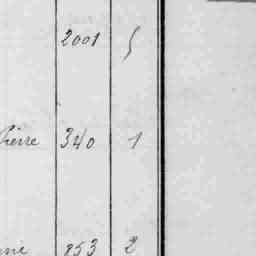 2001 5
Pierre 340 1
853 2